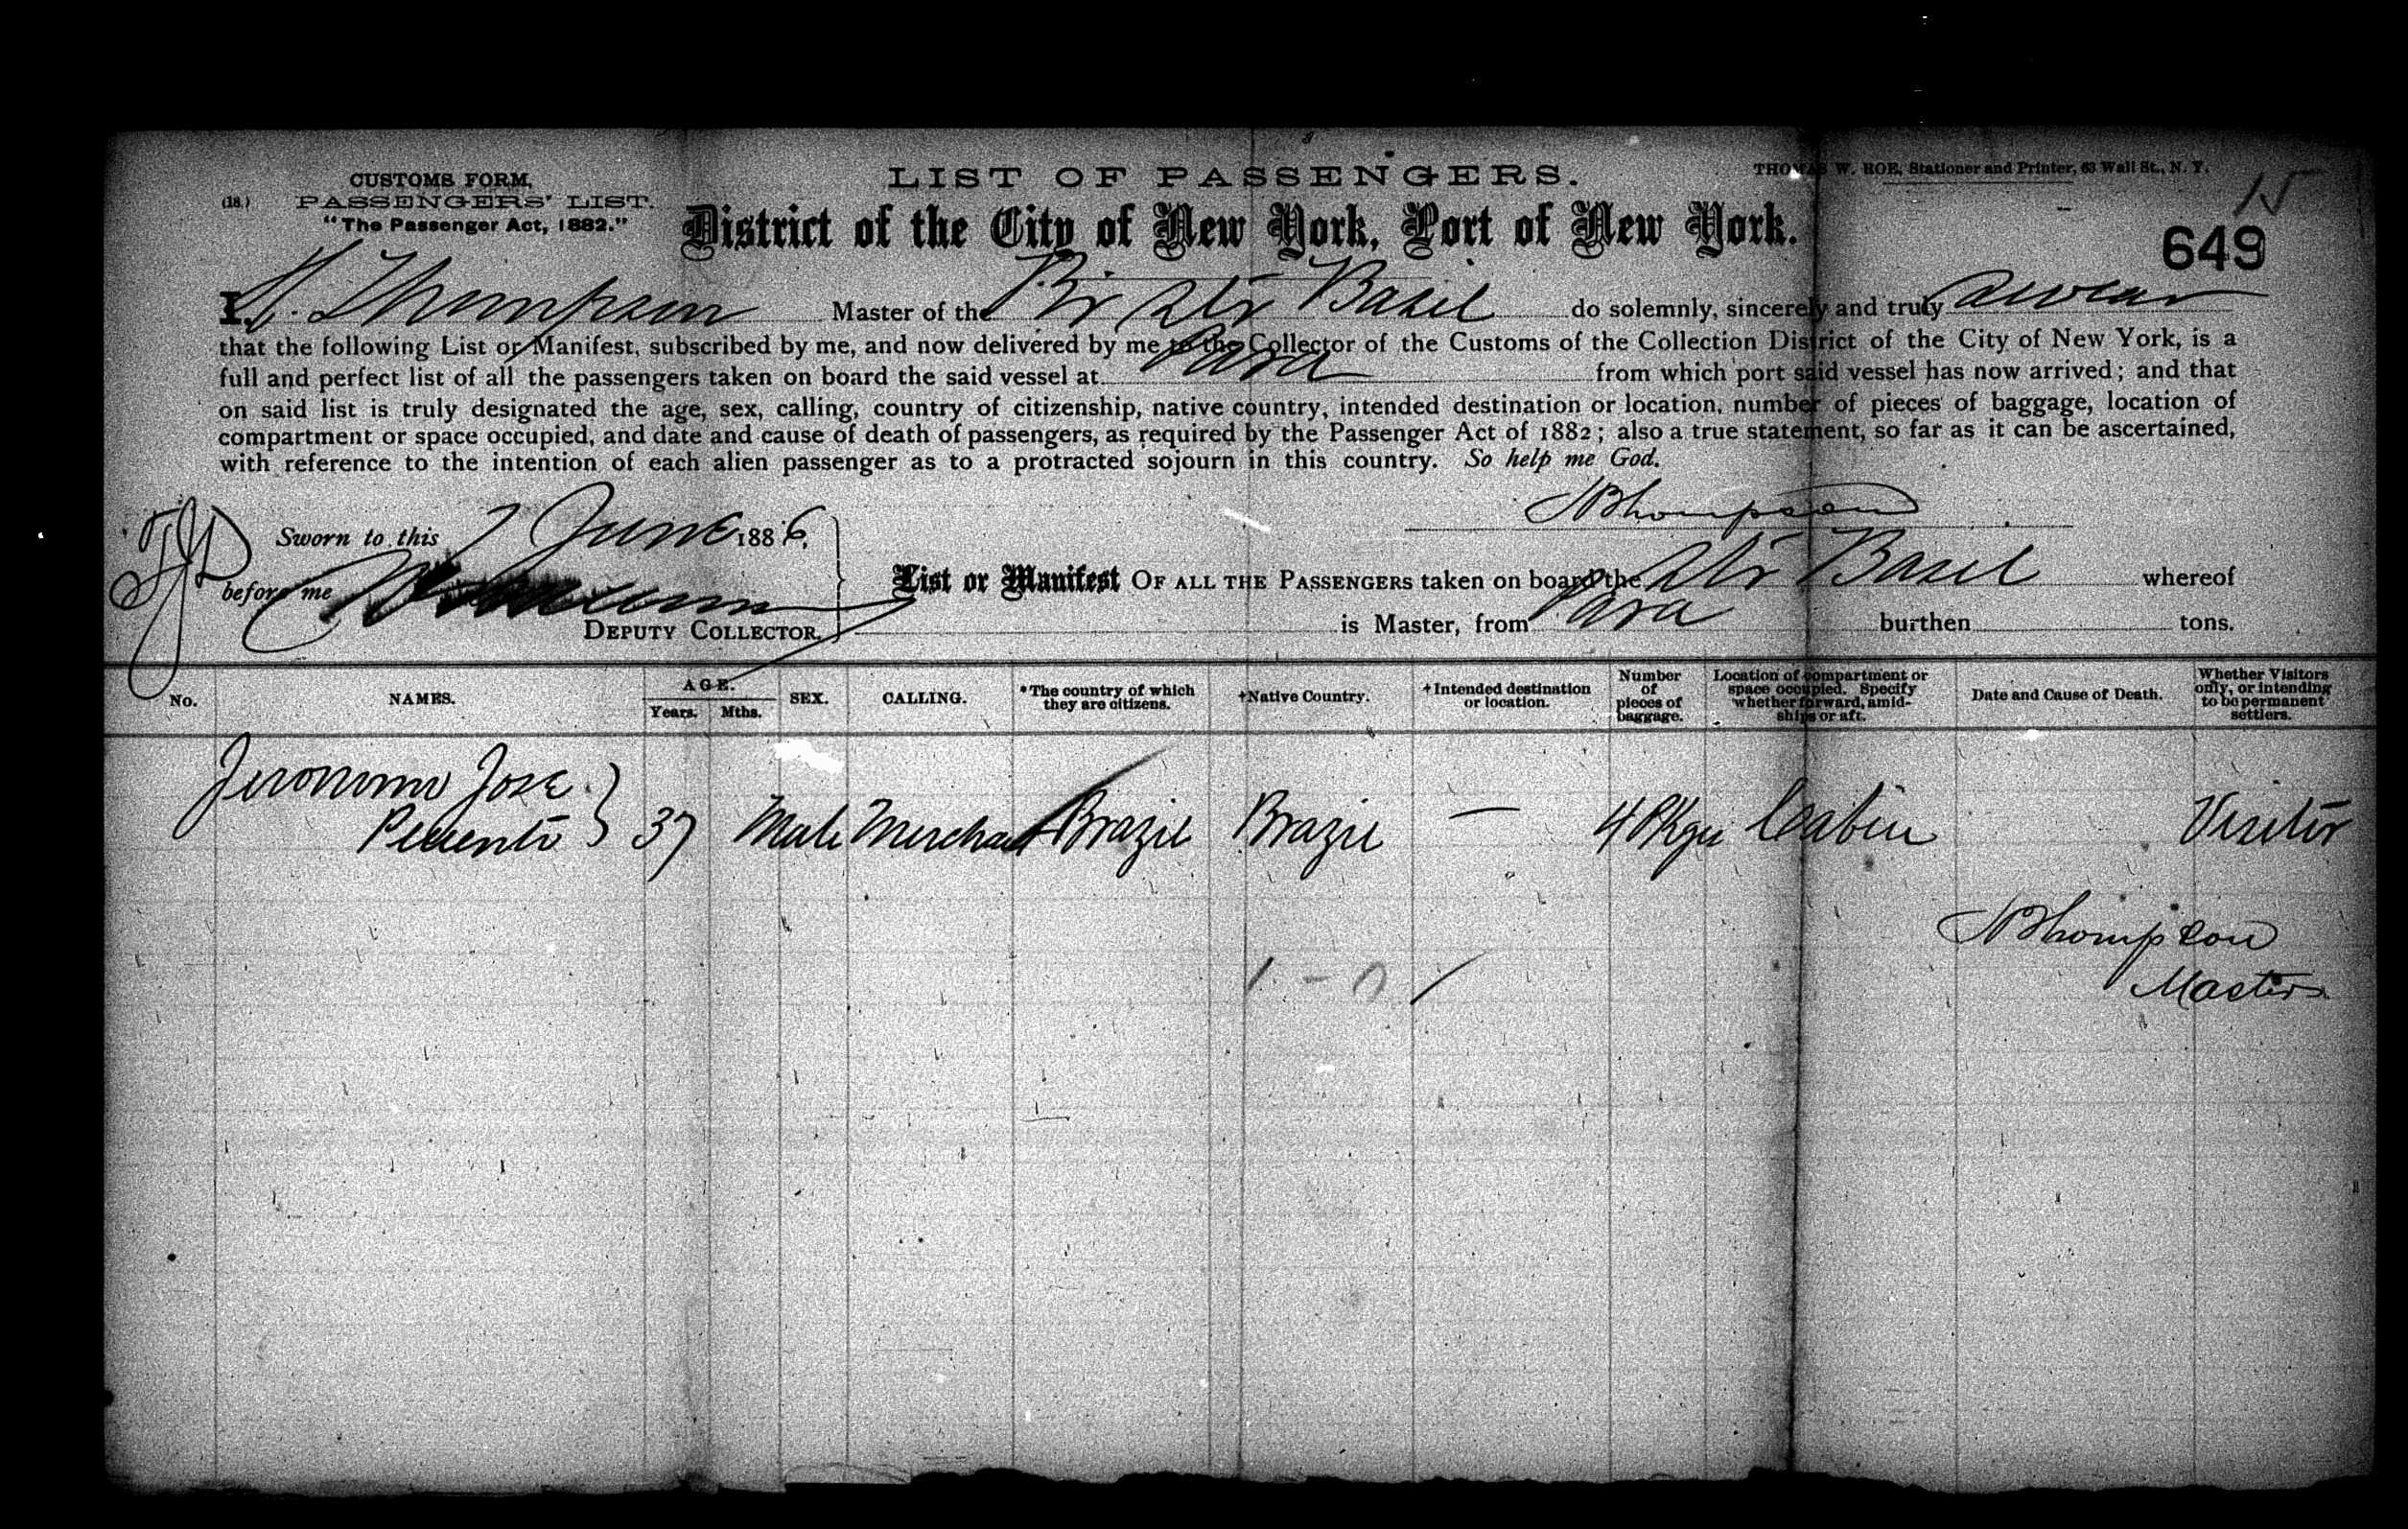 CUSTOMS FORM,
(18.) PASSENGERS' LIST.
"The Passenger Act, 1882."
LIST OF PASSENGERS.
THOMAS W. ROE, Stationer and Printer, 63 Wall St., N. Y.
15
District of the City of New York, Port of New York.
649
I, Thompson Master of the Br Str Basil do solemnly, sincerely and truly swear
that the following List or Manifest, subscribed by me, and now delivered by me to the Collector of the Customs of the Collection District of the City of New York, is a
full and perfect list of all the passengers taken on board the said vessel at Para from which port said vessel has now arrived; and that
on said list is truly designated the age, sex, calling, country of citizenship, native country, intended destination or location, number of pieces of baggage, location of
compartment or space occupied, and date and cause of death of passengers, as required by the Passenger Act of 1882; also a true statement, so far as it can be ascertained,
with reference to the intention of each alien passenger as to a protracted sojourn in this country. So help me God.
Thompson
Sworn to this 7 June 1886,
before me
DEPUTY COLLECTOR.
List or Manifest OF ALL THE PASSENGERS taken on board the Str Basil whereof
is Master, from Para burthen tons.
No. NAMES. AGE. Years. Mths. SEX. CALLING. *The country of which they are citizens. +Native Country. +Intended destination or location. Number of pieces of baggage. Location of compartment or space occupied. Specify whether forward, amidships or aft. Date and Cause of Death. Whether Visitors only, or intending to be permanent settlers.
Jeronimo Jose
37 Male Merchant Brazil Brazil — 4 Pkgs Cabin Visitor
Thompson
Master